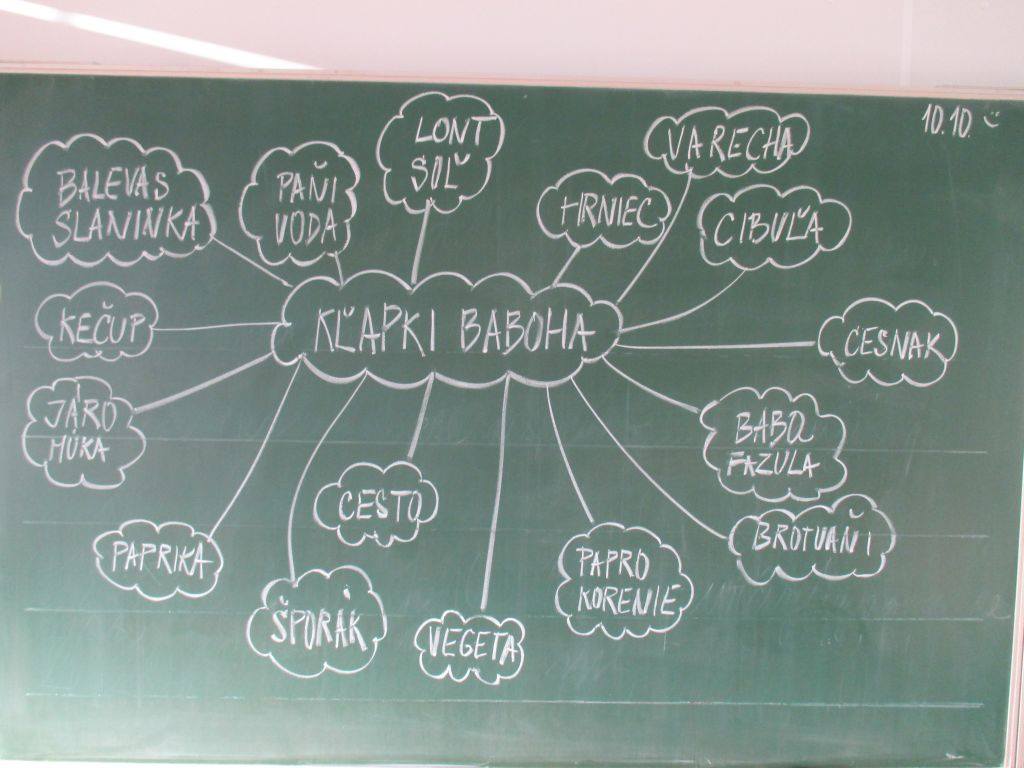 10.10.
LONT
SOĽ
VARECHA
BALEVAS
SLANINKA
PAŇI
VODA
HRNIEC
CIBUĽA
KĽAPKI BABOHA
KEČUP
CESNAK
JARO
MÚKA
BABO
FAZULA
CESTO
PAPRIKA
BROTVAŇI
PAPRO
KORENIE
ŠPORÁK
VEGETA